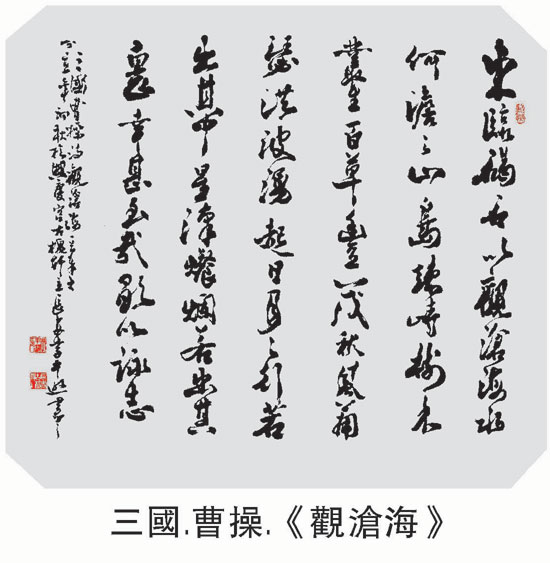 東臨碣石以觀滄海水
何澹々山島竦峙樹木
叢生百草豐茂秋風蕭
瑟洪波湧起日月之行若
出其中星漢燦爛若出其
裏幸甚至哉歌以詠志
三國曹操詩觀滄海
三國.曹操.《觀滄海》